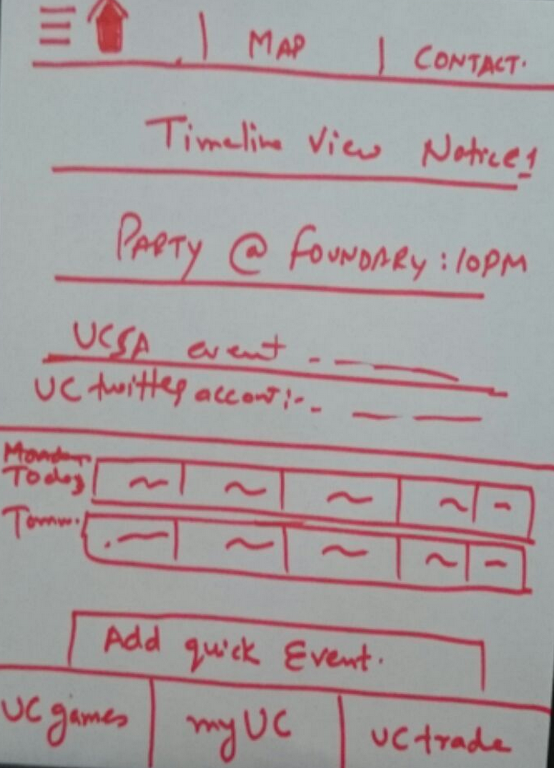 MAP | CONTACT.
Timeline View Notice!
PARTY @ FOUNDARY : 10PM
UCSA event
UC twitter account :-
Today
Tomm.
Add quick Event.
UC games
my UC
UC trade